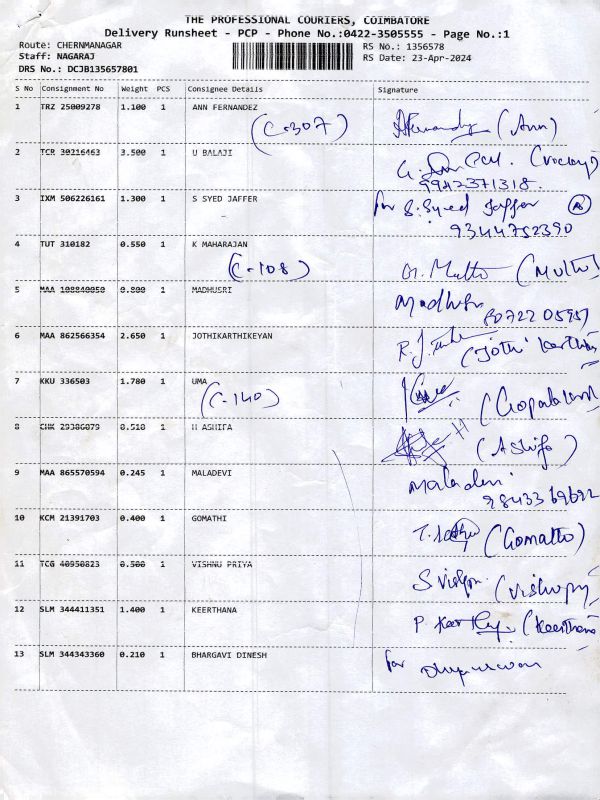 THE PROFESSIONAL COURIERS, COIMBATORE
Delivery Runsheet - PCP - Phone No.:0422-3505555 - Page No.:1
Route: CHERNMANAGAR RS No.: 1356578
Staff: NAGARAJ RS Date: 23-Apr-2024
DRS No.: DCJB135657801
S No Consignment No Weight PCS Consignee Details Signature
1 TRZ 25009278 1.100 1 ANN FERNANDEZ
(C-307) (Ann)
2 TCR 30216463 3.500 1 U BALAJI
9942371318
3 IXM 506226161 1.300 1 S SYED JAFFER for S. Syed Jaffer
9344752390
4 TUT 310182 0.550 1 K MAHARAJAN
(C-108) (Muthu)
5 MAA 108840050 0.800 1 MADHUSRI
6 MAA 862566354 2.650 1 JOTHIKARTHIKEYAN
7 KKU 336503 1.780 1 UMA
(C-140)
8 CHK 29306079 0.510 1 H ASHIFA
(Ashifa)
9 MAA 865570594 0.245 1 MALADEVI Maladevi
10 KCM 21391703 0.400 1 GOMATHI
11 TCG 40950823 0.500 1 VISHNU PRIYA
12 SLM 344411351 1.400 1 KEERTHANA
(Keerthana)
13 SLM 344343360 0.210 1 BHARGAVI DINESH for